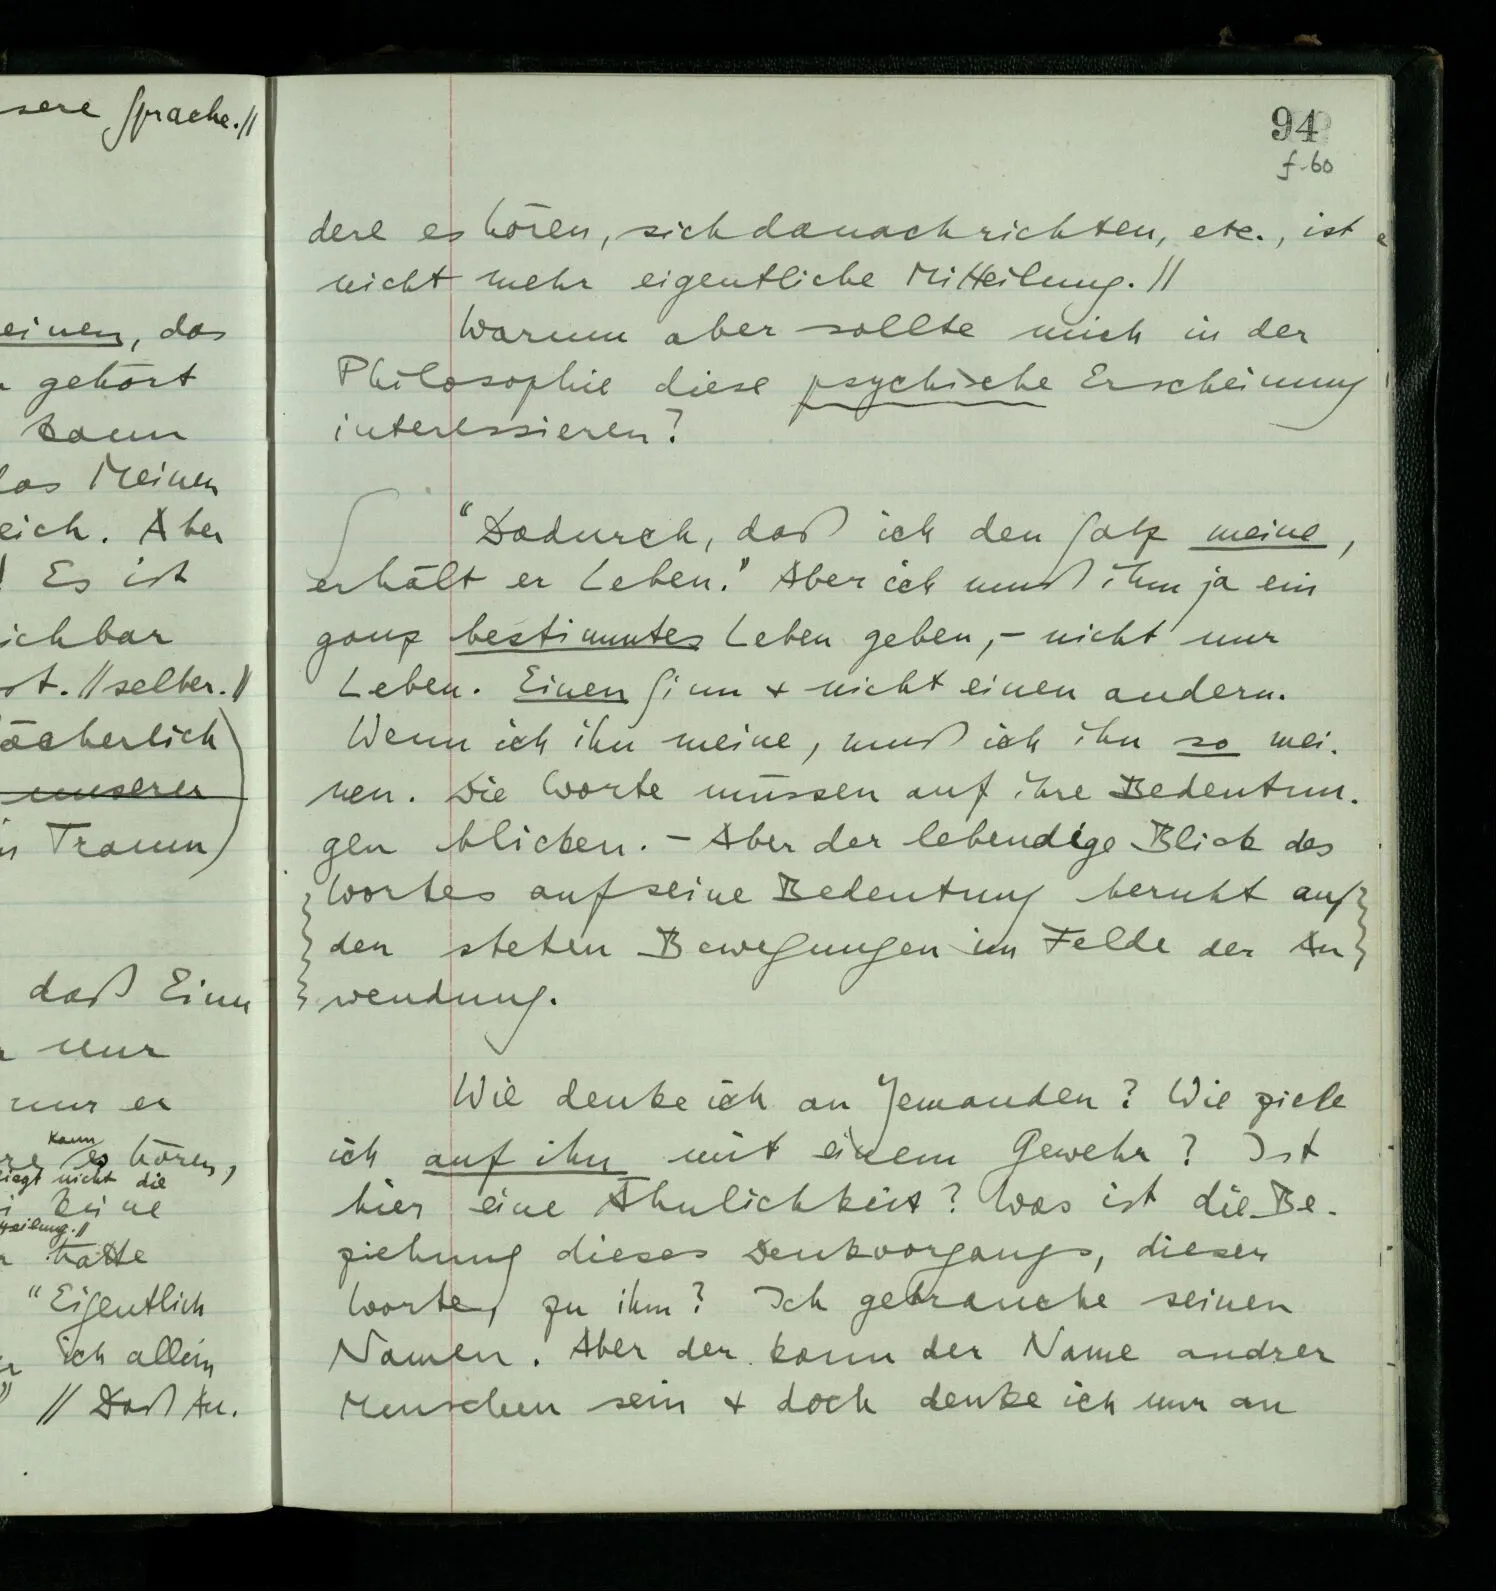 sere Sprache.//
einen, das
gehört
kann
das Meinen
eich. Aber
! Es ist
ichbar
st. // selber. //
ächerlich
unserer
Traum)
daß Einer
nur
nur er
kann
re es hören,
liegt nicht die
keine
tteilung.//
hätte
"Eigentlich
ich allein
" // Daß An.
94
f. 60
dere es hören, sich danach richten, etc., ist
nicht mehr eigentliche Mitteilung. //
Warum aber sollte mich in der
Philosophie diese psychische Erscheinung
interessieren?
"Dadurch, daß ich den Satz meine,
erhält er Leben." Aber ich muß ihm ja ein
ganz bestimmtes Leben geben, – nicht nur
Leben. Einen Sinn & nicht einen andern.
Wenn ich ihn meine, muß ich ihn so mei-
nen. Die Worte müssen auf ihre Bedeutun-
gen blicken. – Aber der lebendige Blick des
Wortes auf seine Bedeutung beruht auf
den steten Bewegungen im Felde der An
wendung.
Wie denke ich an Jemanden? Wie ziele
ich auf ihn mit einem Gewehr? Ist
hier eine Ähnlichkeit? Was ist die Be-
ziehung dieses Denkvorgangs, dieser
Worte, zu ihm? Ich gebrauche seinen
Namen. Aber der kann der Name andrer
Menschen sein & doch denke ich nur an